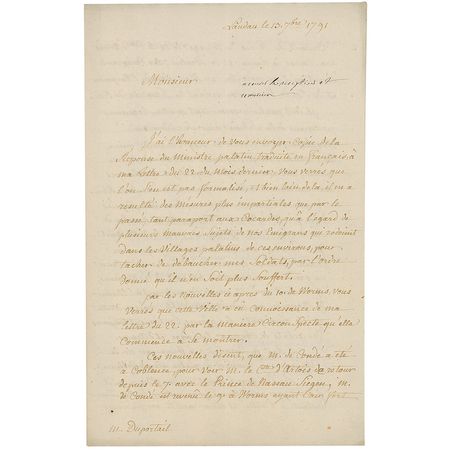 Landau le 13. 7bre 1791
Monsieur
J'ai l'honneur de vous envoyer copie de la
Réponse du Ministre palatin traduite en français, à
ma lettre du 22. du Mois dernier, vous verrés que
l'on s'en est pas formalisé, et bien loin de la, il en a
resulté des mésures plus impartiales que par le
passé, tant par raport aux Cocardes, qu'à l'égard de
plusieurs mauvais sujets de nos Emigrans qui rodoient
dans les Villages palatins de ces environs, pour
tacher de débaucher mes Soldats, par l'ordre
donné qu'il n'en soit plus Souffert.
par les Nouvelles ci après du 10. de Worms, vous
verrés que cette Ville a eu connoissance de ma
lettre du 22. par la maniere Circonspecte qu'elle
Commence à se montrer.
Ces nouvelles disent, que M. de Condé a été
à Coblence, pour voir M. le Cte d'Artois de retour
depuis le 7. avec le Prince de Nassau Siegen, M.
de Condé est revenu le 9. à Worms ayant l'air fort
M. Duportail.